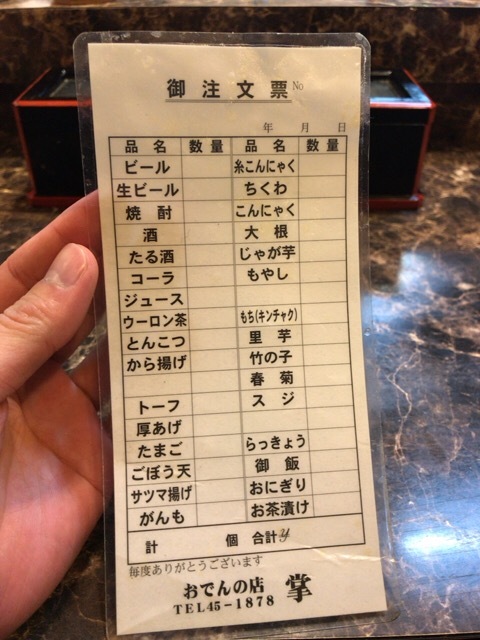 御注文票 No
年 月 日
品名 数量 品名 数量
ビール 糸こんにゃく
生ビール ちくわ
焼酎 こんにゃく
酒 大根
たる酒 じゃが芋
コーラ もやし
ジュース
ウーロン茶 もち(キンチャク)
とんこつ 里芋
から揚げ 竹の子
春菊
トーフ スジ
厚あげ
たまご らっきょう
ごぼう天 御飯
サツマ揚げ おにぎり
がんも お茶漬け
計 個 合計¥
毎度ありがとうございます
おでんの店 掌
TEL45-1878